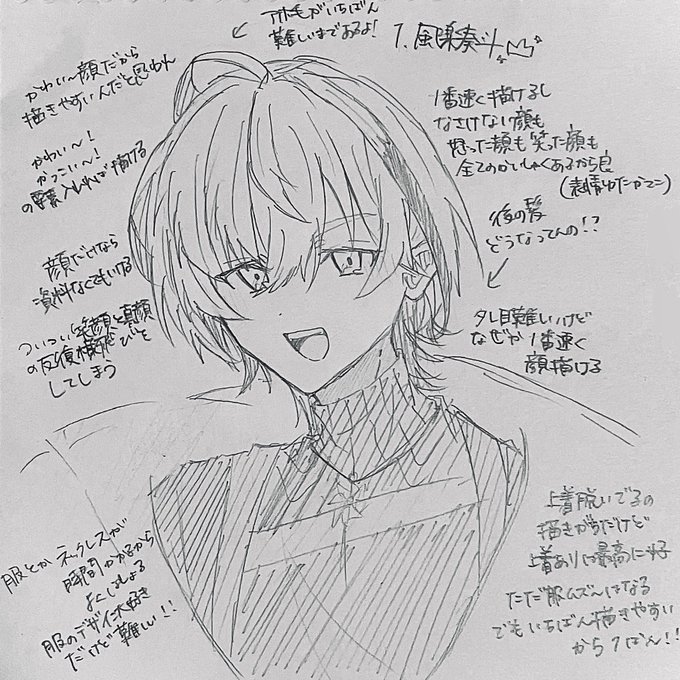 アホ毛がいちばん
難しいまであるよ!
1.風楽奏斗
かわいい顔だから
描きやすいんだと思われ
かわい〜!
かっこい〜!
の要素入れれば描ける
顔だけなら
資料なくてもいける
ついつい笑顔と真顔
の反復横跳びを
してしまう
1番速く描けるし
なさけない顔も
怒った顔も笑った顔も
全てのかいしゃくあるから良
(表情ゆたかでここ)
後の髪
どうなってんの!?
タレ目難しいけど
なぜか1番速く
顔描ける
服とかネックレスが
時間かかるから
よくしょる
服のデザイン大好き
だけど難しい!!
上着脱いでるの
描きがちだけど
上着ありは最高に好
ただ服んでんはなる
でもいちばん描きやすい
から1ばん!!